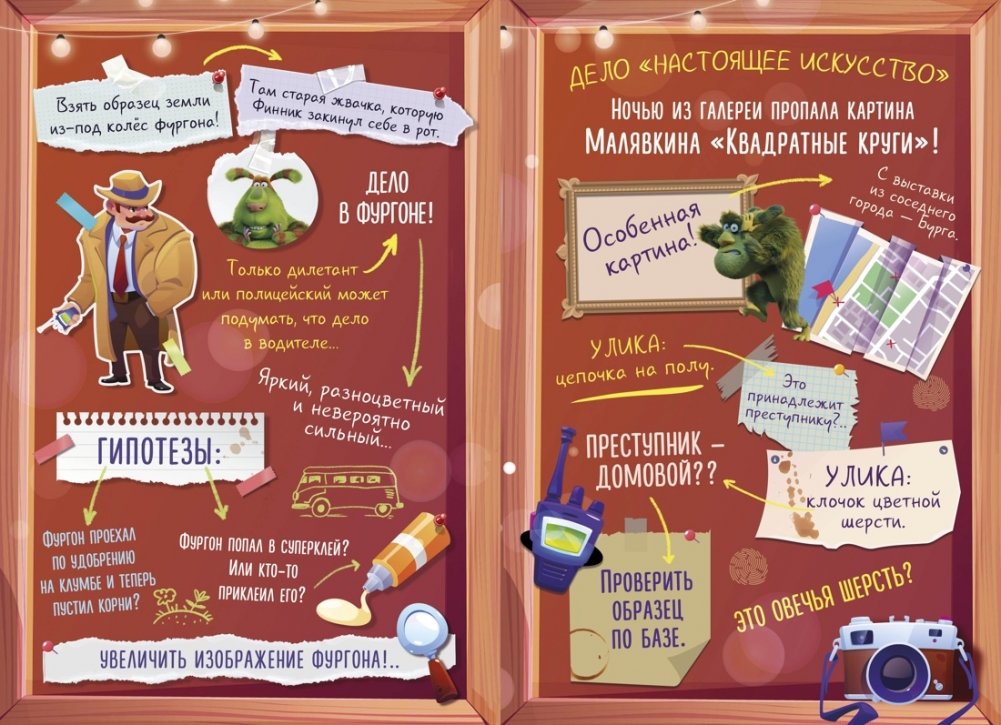 Взять образец земли
из-под колёс фургона!
Там старая жвачка, которую
Финник закинул себе в рот.
ДЕЛО
В ФУРГОНЕ!
Только дилетант
или полицейский может
подумать, что дело
в водителе...
Яркий, разноцветный
и невероятно
сильный...
ГИПОТЕЗЫ:
ФУРГОН ПРОЕХАЛ
ПО УДОБРЕНИЮ
НА КЛУМБЕ И ТЕПЕРЬ
ПУСТИЛ КОРНИ?
ФУРГОН ПОПАЛ В СУПЕРКЛЕЙ?
ИЛИ КТО-ТО
ПРИКЛЕИЛ ЕГО?
УВЕЛИЧИТЬ ИЗОБРАЖЕНИЕ ФУРГОНА!..
ДЕЛО «НАСТОЯЩЕЕ ИСКУССТВО»
НОЧЬЮ ИЗ ГАЛЕРЕИ ПРОПАЛА КАРТИНА
МАЛЯВКИНА «КВАДРАТНЫЕ КРУГИ»!
Особенная
картина!
С выставки
из соседнего
города — Бурга.
УЛИКА:
цепочка на полу.
Это
принадлежит
преступнику?..
ПРЕСТУПНИК –
ДОМОВОЙ??
УЛИКА:
клочок цветной
шерсти.
ПРОВЕРИТЬ
ОБРАЗЕЦ
ПО БАЗЕ.
ЭТО ОВЕЧЬЯ ШЕРСТЬ?